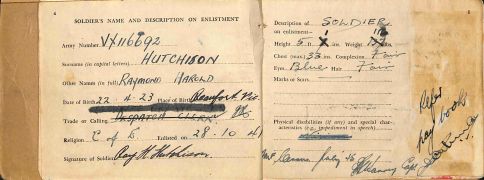 4
SOLDIER'S NAME AND DESCRIPTION ON ENLISTMENT
Army Number VX116692
Surname (in capital letters) HUTCHISON
Other Names (in full) RAYMOND HAROLD
Date of Birth 22.4.23 Place of Birth Beaufort Vic.
Trade or Calling DESPATCH CLERK
Religion C of E. Enlisted on 28.10.41
Signature of Soldier Ray H. Hutchison
Description of SOLDIER
on enlistment—
Height 5 ft. ins. Weight
Chest (max.) 33 ins. Complexion Fair
Eyes Blue Hair Fair
Marks or Scars
Physical disabilities (if any) and special characteristics (e.g. impediment in speech)
Capt
Refer
pay book